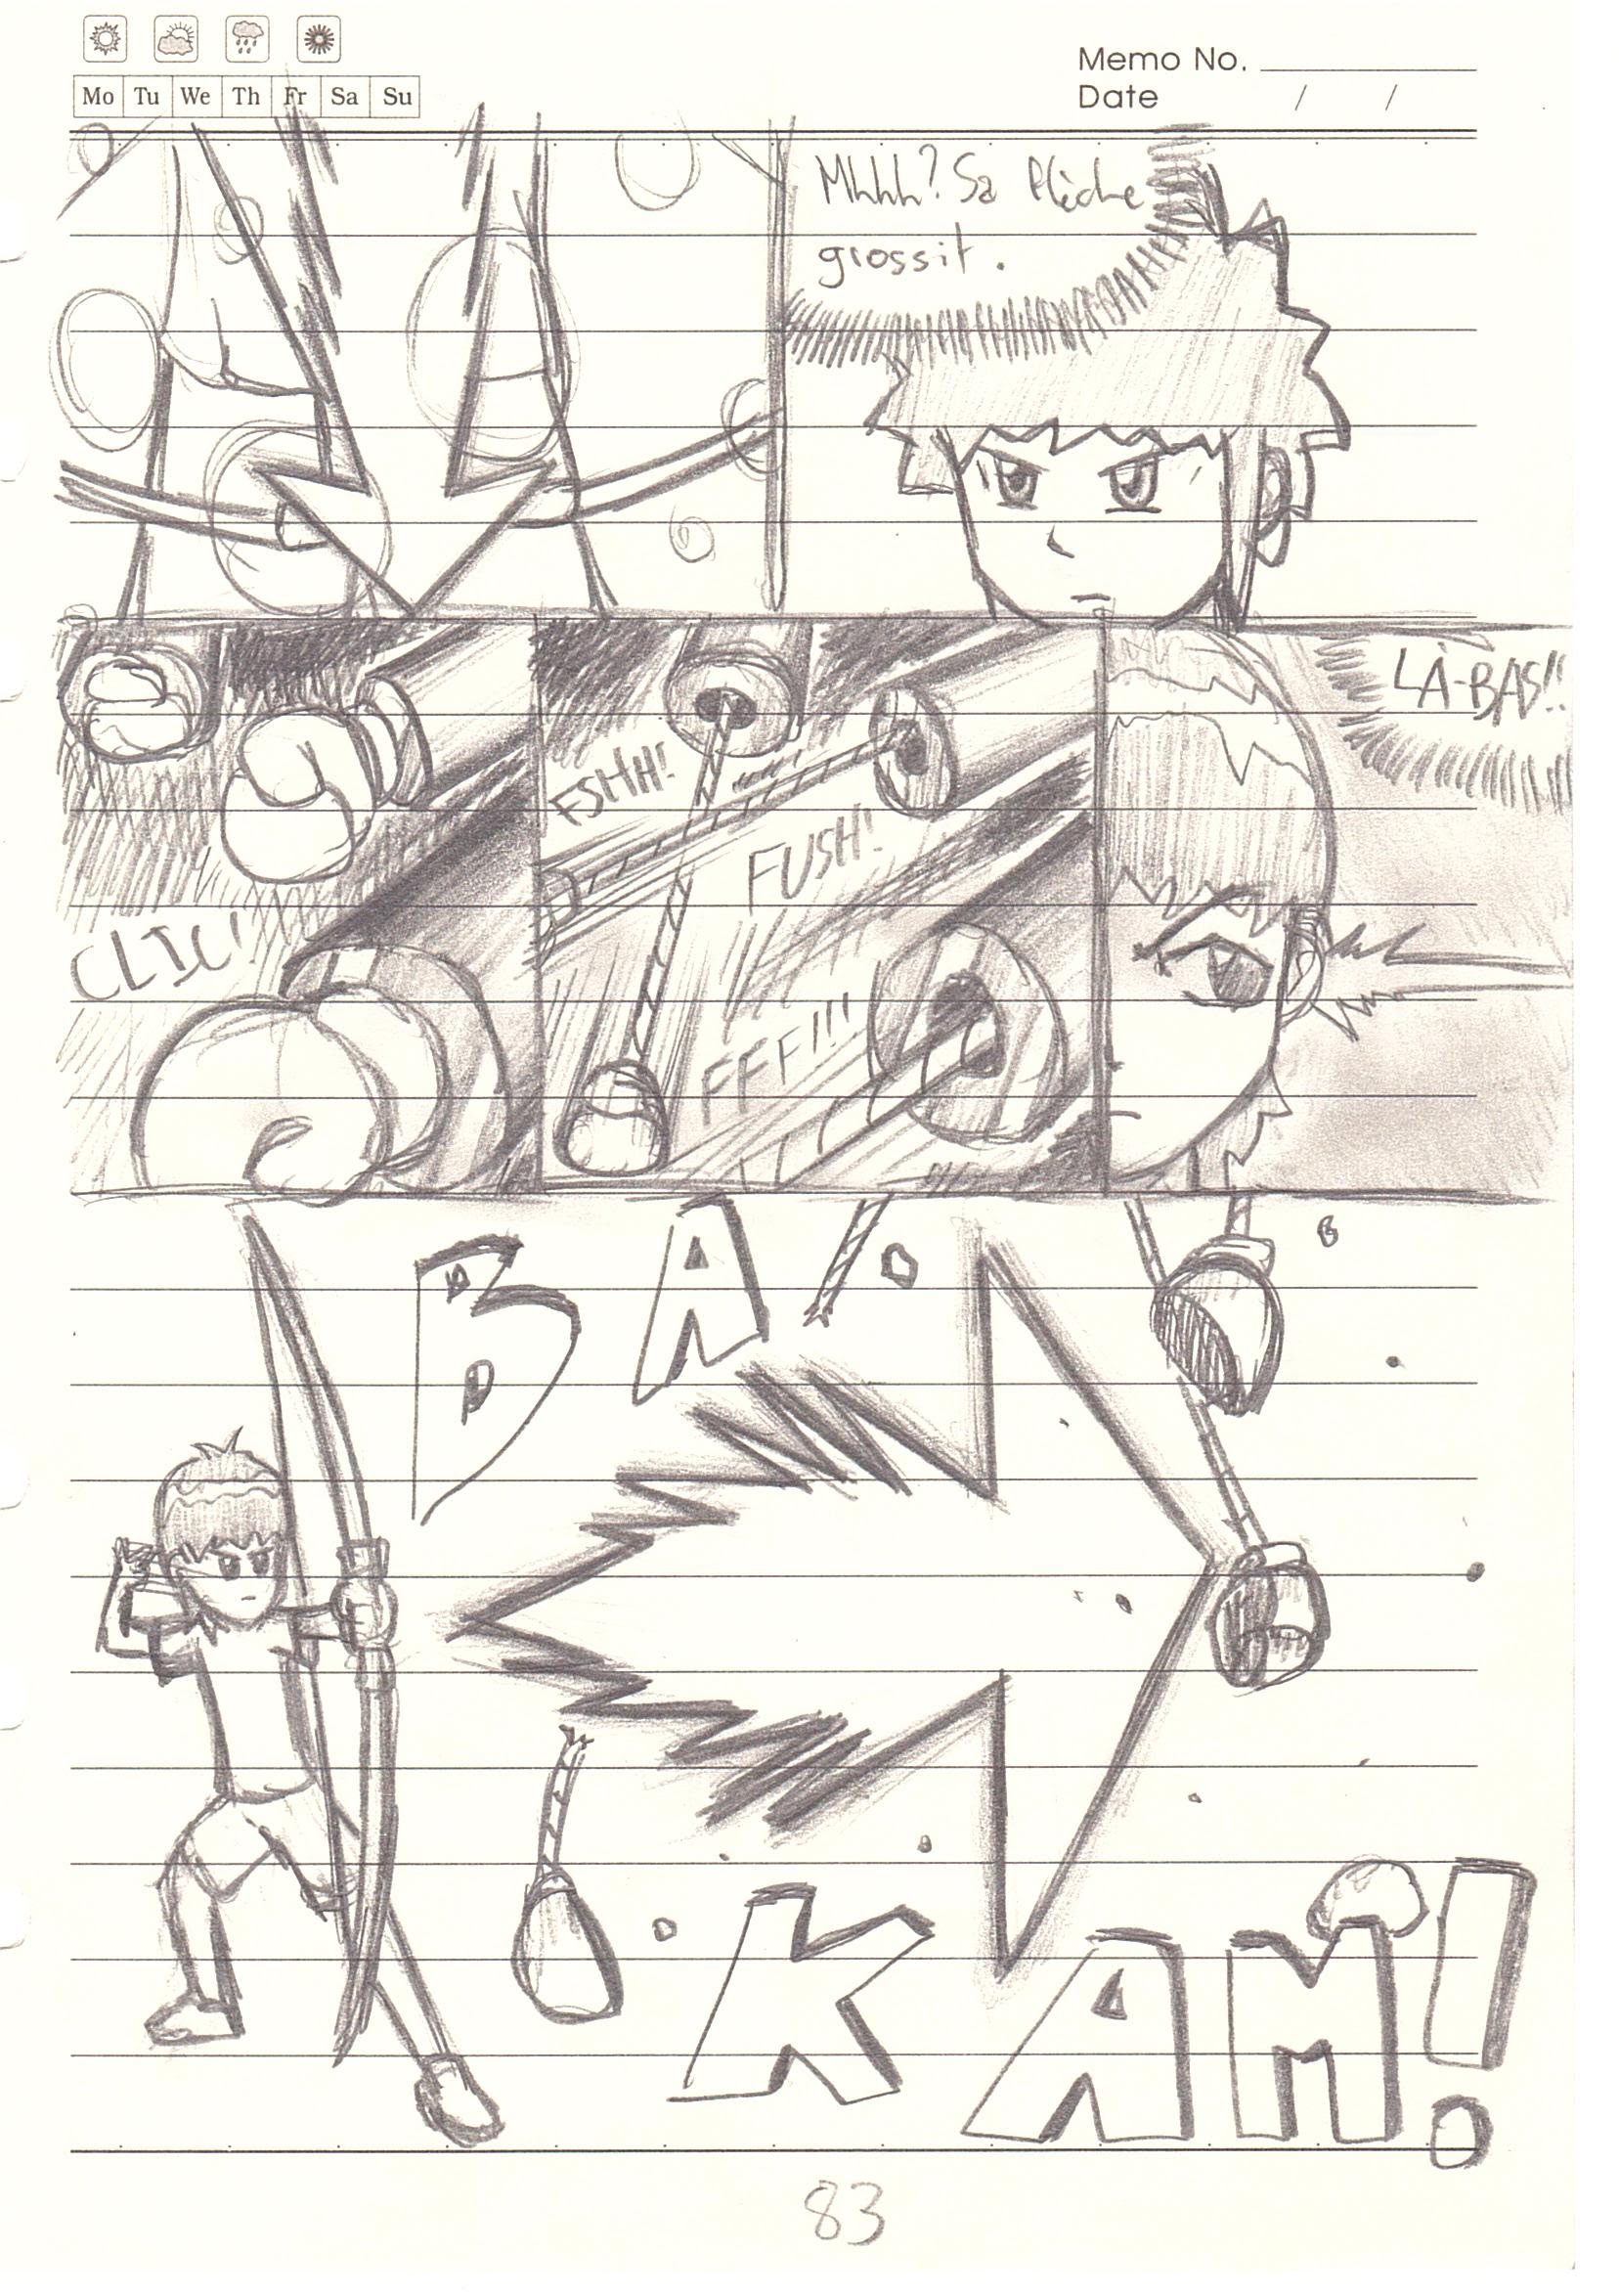 Mo Tu We Th Fr Sa Su
Memo No.
Date / /
Mhhh? Sa flèche
grossit.
CLIC!
FSHH!
FUSH!
FFF!!!
LÀ-BAS!!
BA
KAM!
83